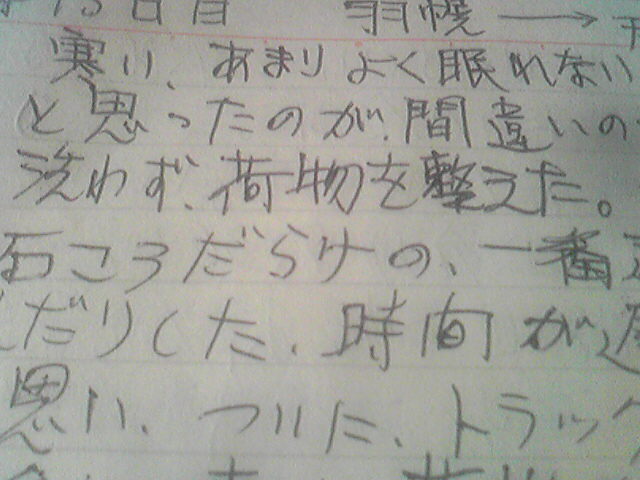 15日目 羽幌 →
寒い、あまりよく眠れない
と思ったのが、間違いの
洗わず、荷物を整えた。
石ころだらけの、一番
だりした、時間が
思い、ついに、トラック